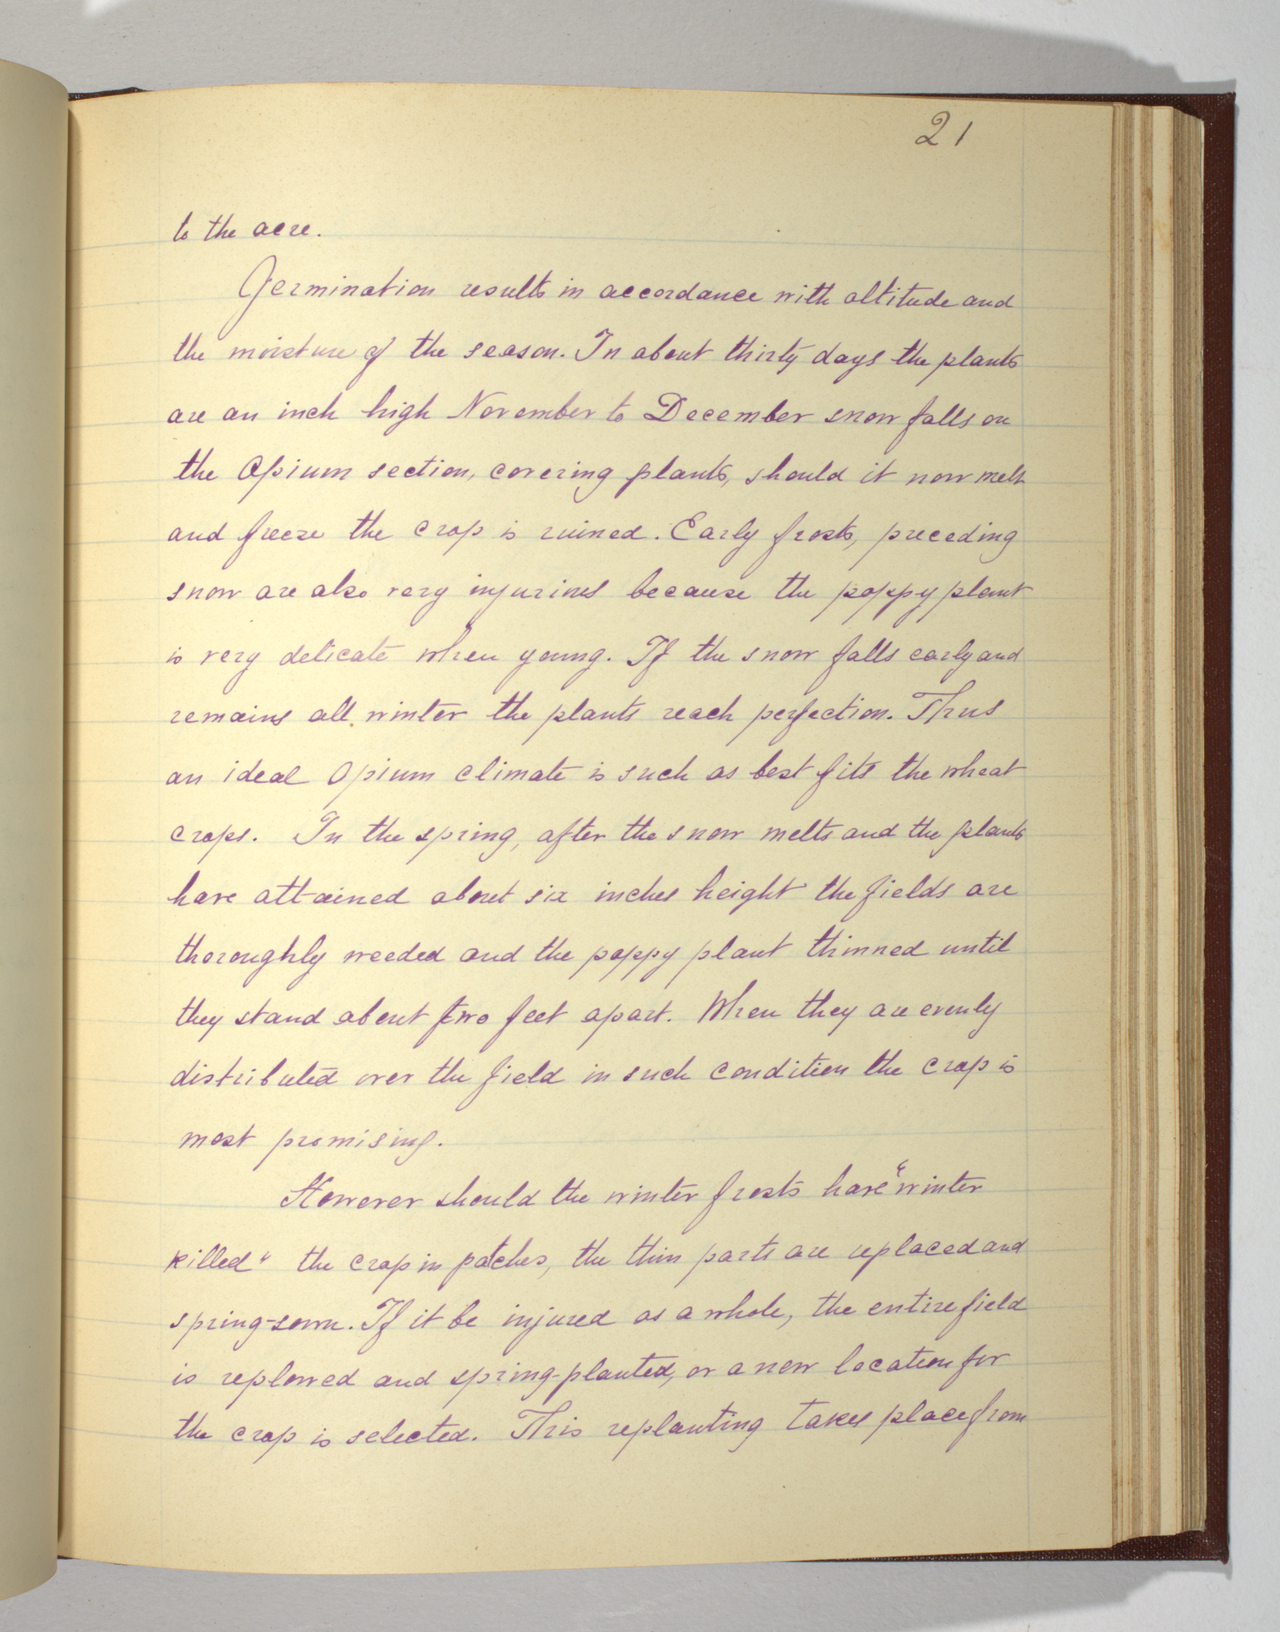 21
to the acre.
Germination results in accordance with altitude and
the moisture of the season. In about thirty days the plants
are an inch high November to December snow falls on
the Opium section, covering plants, should it now melt
and freeze the crop is ruined. Early frosts, preceding
snow are also very injurious because the poppy plant
is very delicate when young. If the snow falls early and
remains all winter the plants reach perfection. Thus
an ideal Opium climate is such as best fits the wheat
crops. In the spring, after the snow melts and the plants
have attained about six inches height the fields are
thoroughly weeded and the poppy plant thinned until
they stand about two feet apart. When they are evenly
distributed over the field in such condition the crop is
most promising.
However should the winter frosts have "winter
killed" the crop in patches, the thin parts are replaced and
spring-sown. If it be injured as a whole, the entire field
is replowed and spring-planted, or a new location for
the crop is selected. This replanting takes place from